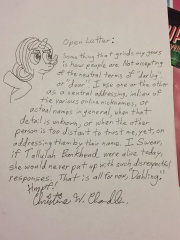 Open Letter:
Something that grinds my gears
is how people are Not accepting
of the neutral terms of "darling"
or "dear". I use one or the other
as a neutral addressing, in lieu of
the various online nicknames, or
actual names in general, when that
detail is unknown, or when the other
person is too distant to trust me, yet, on
addressing them by their name. I Swear,
if Tallulah Bankhead, were alive today,
she would never put up with such disrespectful
responses. That is all for now, "Dahling."
Hmpf!
Christine W. Chandler